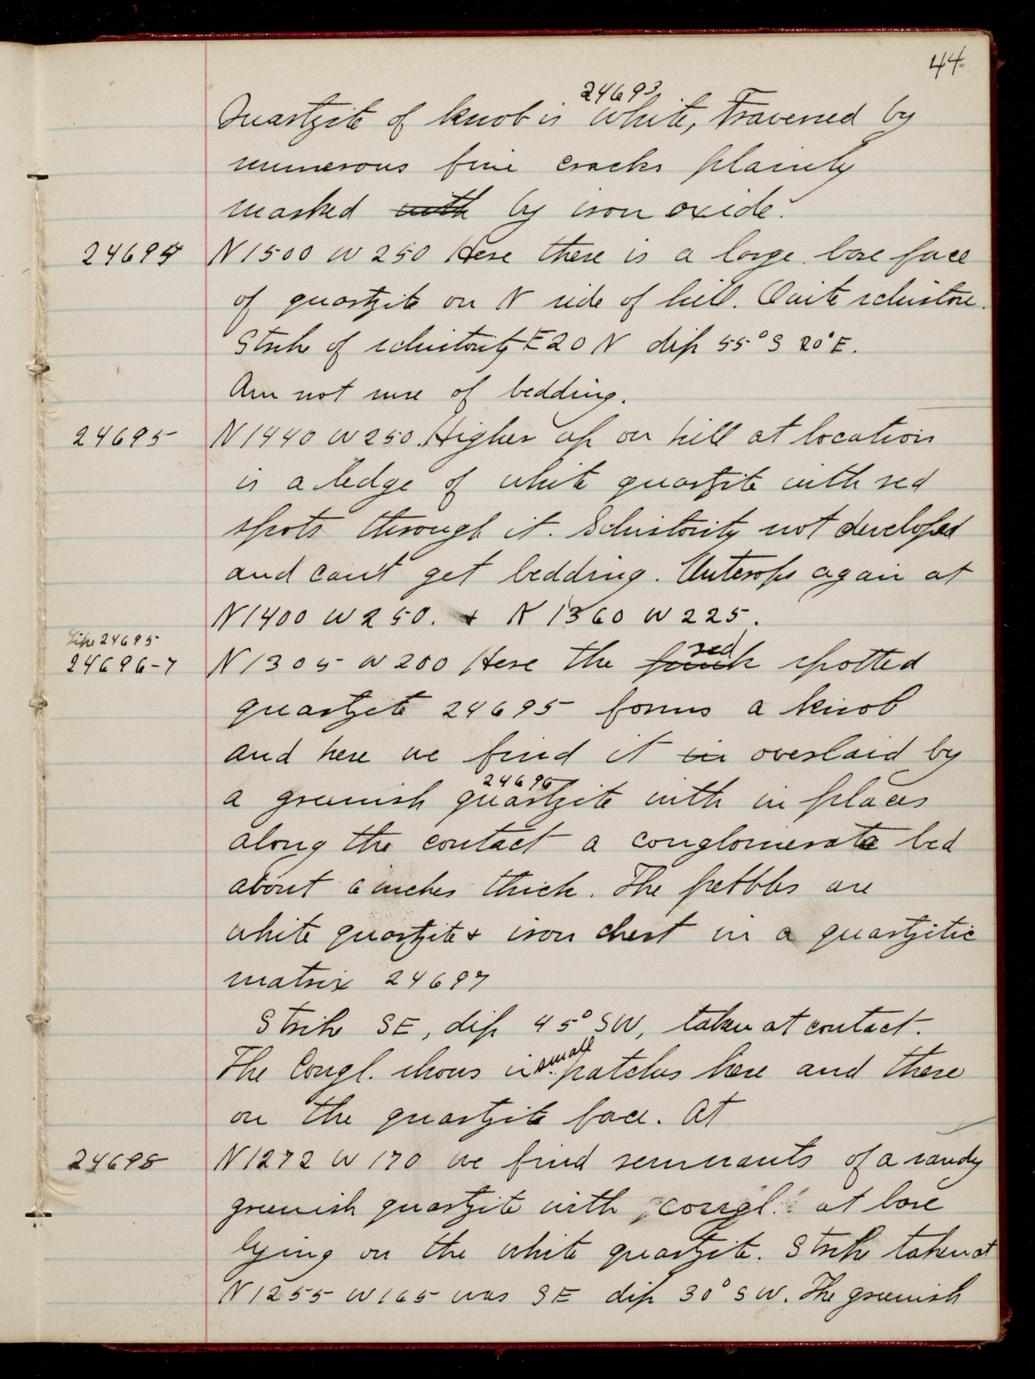 44
24693
Quartzite of knob is white, Traversed by
numerous fine cracks plainly
marked with by iron oxide.
24694 N1500 W250 Here there is a large bare face
of quartzite on N side of hill. Quite schistose.
Strike of schistosity E20N dip 55° S 20° E.
Am not sure of bedding.
24695 N1440 W250. Higher up on hill at location
is a ledge of white quartzite with red
spots through it. Schistosity not developed
and can't get bedding. Outcrops again at
N1400 W250. + N 1360 W225.
Like 24695
24696-7 N1305 W200 Here the pink red spotted
quartzite 24695 forms a knob
and here we find it in overlaid by
24696
a greenish quartzite with in places
along the contact a conglomerate bed
about 6 inches thick. The pebbles are
white quartzite + iron chert in a quartzitic
matrix 24697
Strike SE, dip 45° SW, taken at contact.
The Congl. shows in small patches here and there
on the quartzite face. At
24698 N1272 W170 we find remnants of a sandy
greenish quartzite with congl. at base
lying on the white quartzite. Strike taken at
N1255 W165 was SE dip 30° SW. The greenish